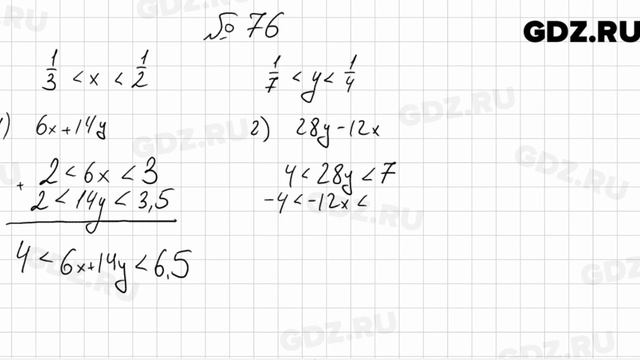 № 76
GDZ.RU
1/3 < x < 1/2
1/7 < y < 1/4
1) 6x+14y
2 < 6x < 3
+ 2 < 14y < 3,5
4 < 6x+14y < 6,5
2) 28y-12x
4 < 28y < 7
-4 < -12x <